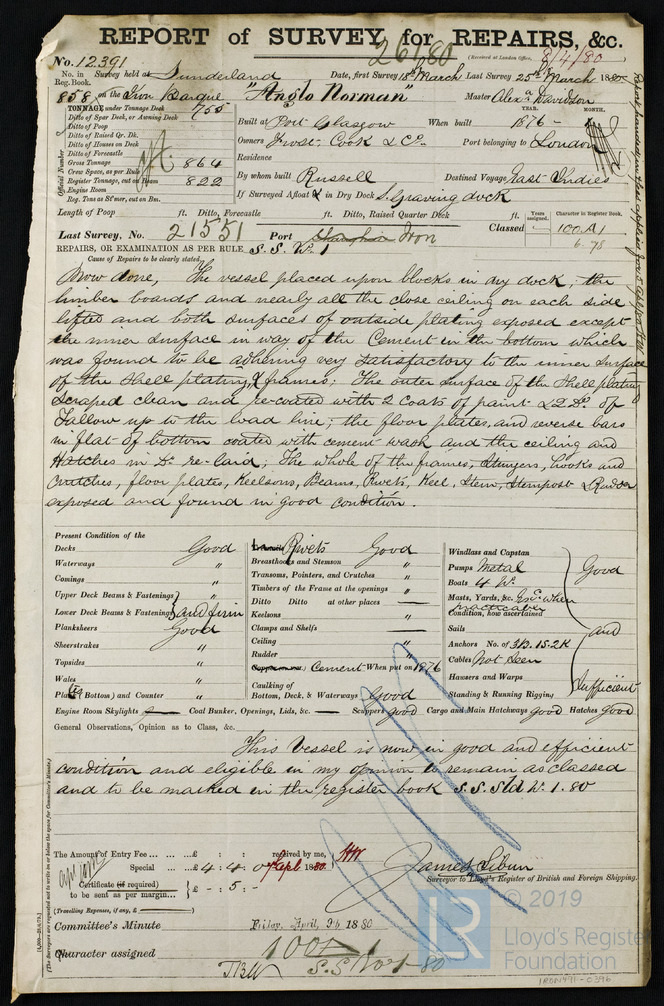 REPORT of SURVEY for REPAIRS, &c.
26180
(Received at London Office, 8/4/80
No. 12391
No. in Reg. Book. Survey held at Sunderland Date, first Survey 15th March Last Survey 25th March 1880
858 on the Iron Barque "Anglo Norman" Master Alexr Davidson
TONNAGE under Tonnage Deck 755
Ditto of Spar Deck, or Awning Deck
Ditto of Poop
Ditto of Raised Qr. Dk.
Ditto of Houses on Deck
Ditto of Forecastle
Gross Tonnage 864
Crew Space, as per Rule
Register Tonnage, cut on Beam 822
Engine Room
Reg. Tons as St'mer, cut on Bm.
Official Number
YEAR. MONTH.
Built at Port Glasgow When built 1876 -
Owners Frost Cook & Co. Port belonging to London
Residence
By whom built Russell Destined Voyage East Indies
If Surveyed Afloat or in Dry Dock S. Graving dock
Length of Poop ft. Ditto, Forecastle ft. Ditto, Raised Quarter Deck ft.
Years assigned. Character in Register Book.
Last Survey, No. 21551 Port Shanghai Iron Classed 100A1
6.78
REPAIRS, OR EXAMINATION AS PER RULE S. S. No. 1
Cause of Repairs to be clearly stated
Now done, The vessel placed upon blocks in dry dock; the
limber boards and nearly all the close ceiling on each side
lifted and both surfaces of outside plating exposed except
the inner surface in way of the Cement in the bottom which
was found to be adhering very satisfactory to the inner surface
of the shell plating, & frames; The outer surface of the shell plating
scraped clean and re-coated with 2 coats of paint & 2 Do. of
Tallow up to the load line; the floor plates, and reverse bars
in flat of bottom coated with cement wash and the ceiling and
Hatches in Do. re-laid; The whole of the frames, Stringers, hooks and
Crutches, floor plates, Keelsons, Beams, Rivets, Keel, Stem, Sternpost & Rudder
exposed and found in good condition.
Present Condition of the
Decks Good
Waterways "
Comings "
Upper Deck Beams & Fastenings
Lower Deck Beams & Fastenings and firm
Planksheers Good
Sheerstrakes "
Topsides "
Wales "
Plates (Bottom) and Counter "
Rivets Good
Breasthooks and Stemson "
Transoms, Pointers, and Crutches "
Timbers of the Frame at the openings "
Ditto Ditto at other places
Keelsons "
Clamps and Shelfs
Ceiling "
Rudder "
Cement When put on 1876
Caulking of Bottom, Deck, & Waterways Good
Windlass and Capstan Good
Pumps Metal
Boats 4 No.
Masts, Yards, &c. Good when practicable
Condition, how ascertained
Sails and
Anchors No. of 3B. 1S. 2K
Cables Not Seen
Hawsers and Warps
Standing & Running Rigging Sufficient
Engine Room Skylights Coal Bunker, Openings, Lids, &c. Scuppers good Cargo and Main Hatchways good Hatches Good
General Observations, Opinion as to Class, &c.
This Vessel is now in good and efficient
condition and eligible in my opinion to remain as classed
and to be marked in the register book S.S. Sld No. 1. 80
The Amount of Entry Fee ... ... £ : : received by me,
Special ... ... £ 4 : 4 : 0 7 April 1880
Certificate (if required) to be sent as per margin... £ - : 5 : -
(Travelling Expenses, if any, £
James Sibun
Surveyor to Lloyd's Register of British and Foreign Shipping.
Committee's Minute Friday, April, 9th 1880
Character assigned 100A1
S.S No 1-80
© 2019
LR
Lloyd's Register
Foundation
IRON491-0396